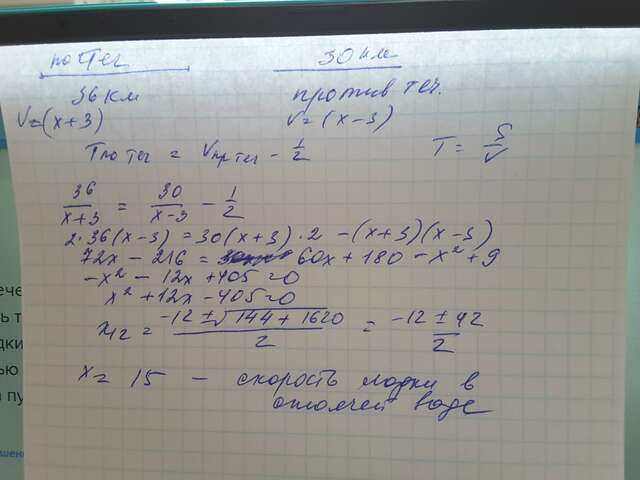 по теч
30 км
36 км
против теч.
V=(x+3)
V=(x-3)
T по теч = Vпр теч - 1/2
T = S/V
36/(x+3) = 30/(x-3) - 1/2
2·36(x-3) = 30(x+3)·2 - (x+3)(x-3)
72x - 216 = 60x + 180 - x² + 9
-x² - 12x + 405 = 0
x² + 12x - 405 = 0
x12 = (-12 ± √(144 + 1620))/2 = (-12 ± 42)/2
x = 15 - скорость лодки в
стоячей воде